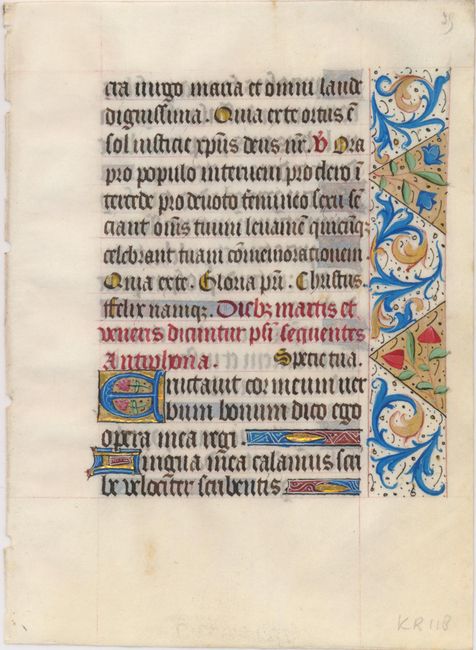 39
cra uirgo maria et omni laude
dignissima. Quia ex te ortus ē
sol iusticie xp̄us deus nr̄. V Ora
pro populo interueni pro clero ī
tercede pro deuoto femineo sexu sē
ciant om̄s tuum leuamē quicūqꝫ
celebrant tuam cōmemorationem.
Quia ex te. Gloria pr̄i. Christus.
ffelix namqꝫ. Diebꝫ martis et
veneris dicuntur ps̄i sequentes
Antephona. Specie tua.
Eructauit cor meum uer
bum bonum dico ego
opera mea regi
Lingua mea calamus scri
be velociter scribentis
KR 118